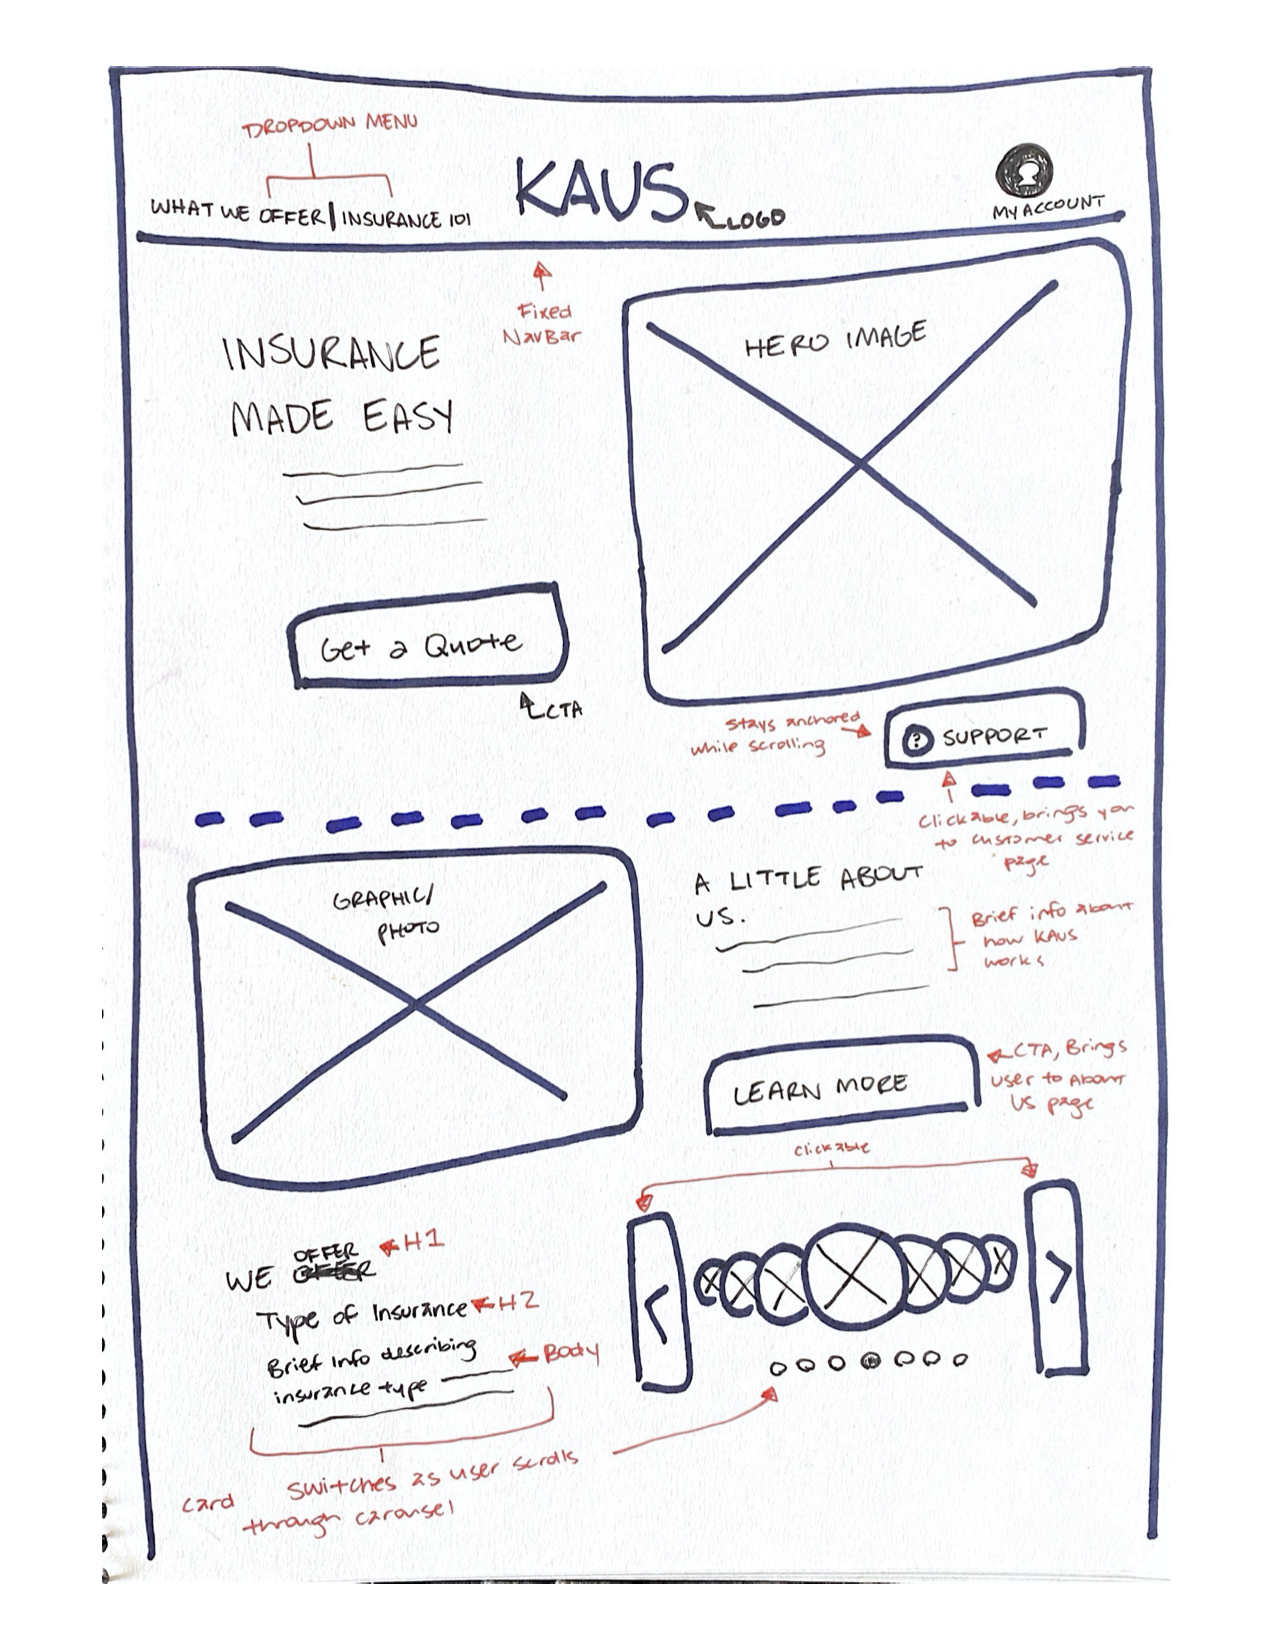 DROPDOWN MENU
WHAT WE OFFER | INSURANCE 101
KAUS
LOGO
MY ACCOUNT
Fixed
NavBar
INSURANCE
MADE EASY
HERO IMAGE
Get a Quote
CTA
Stays anchored
while scrolling
? SUPPORT
Clickable, brings you
to customer service
page
GRAPHIC/
PHOTO
A LITTLE ABOUT
US.
Brief info about
how KAUS
works
LEARN MORE
CTA, Brings
user to About
US page
clickable
WE OFFER
H1
Type of Insurance
H2
Brief Info describing
insurance type
Body
< >
card switches as user scrolls
through carousel